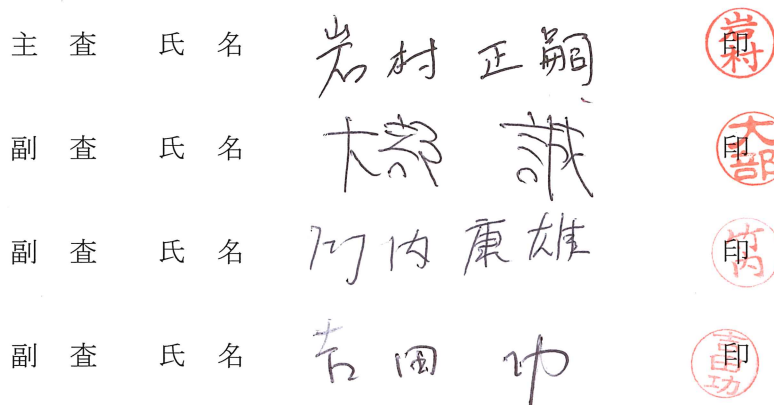 主査 氏名 岩村 正嗣 印 岩村
副査 氏名 大部 誠 印 大部
副査 氏名 竹内康雄 印 竹内
副査 氏名 吉田 功 印 吉田功